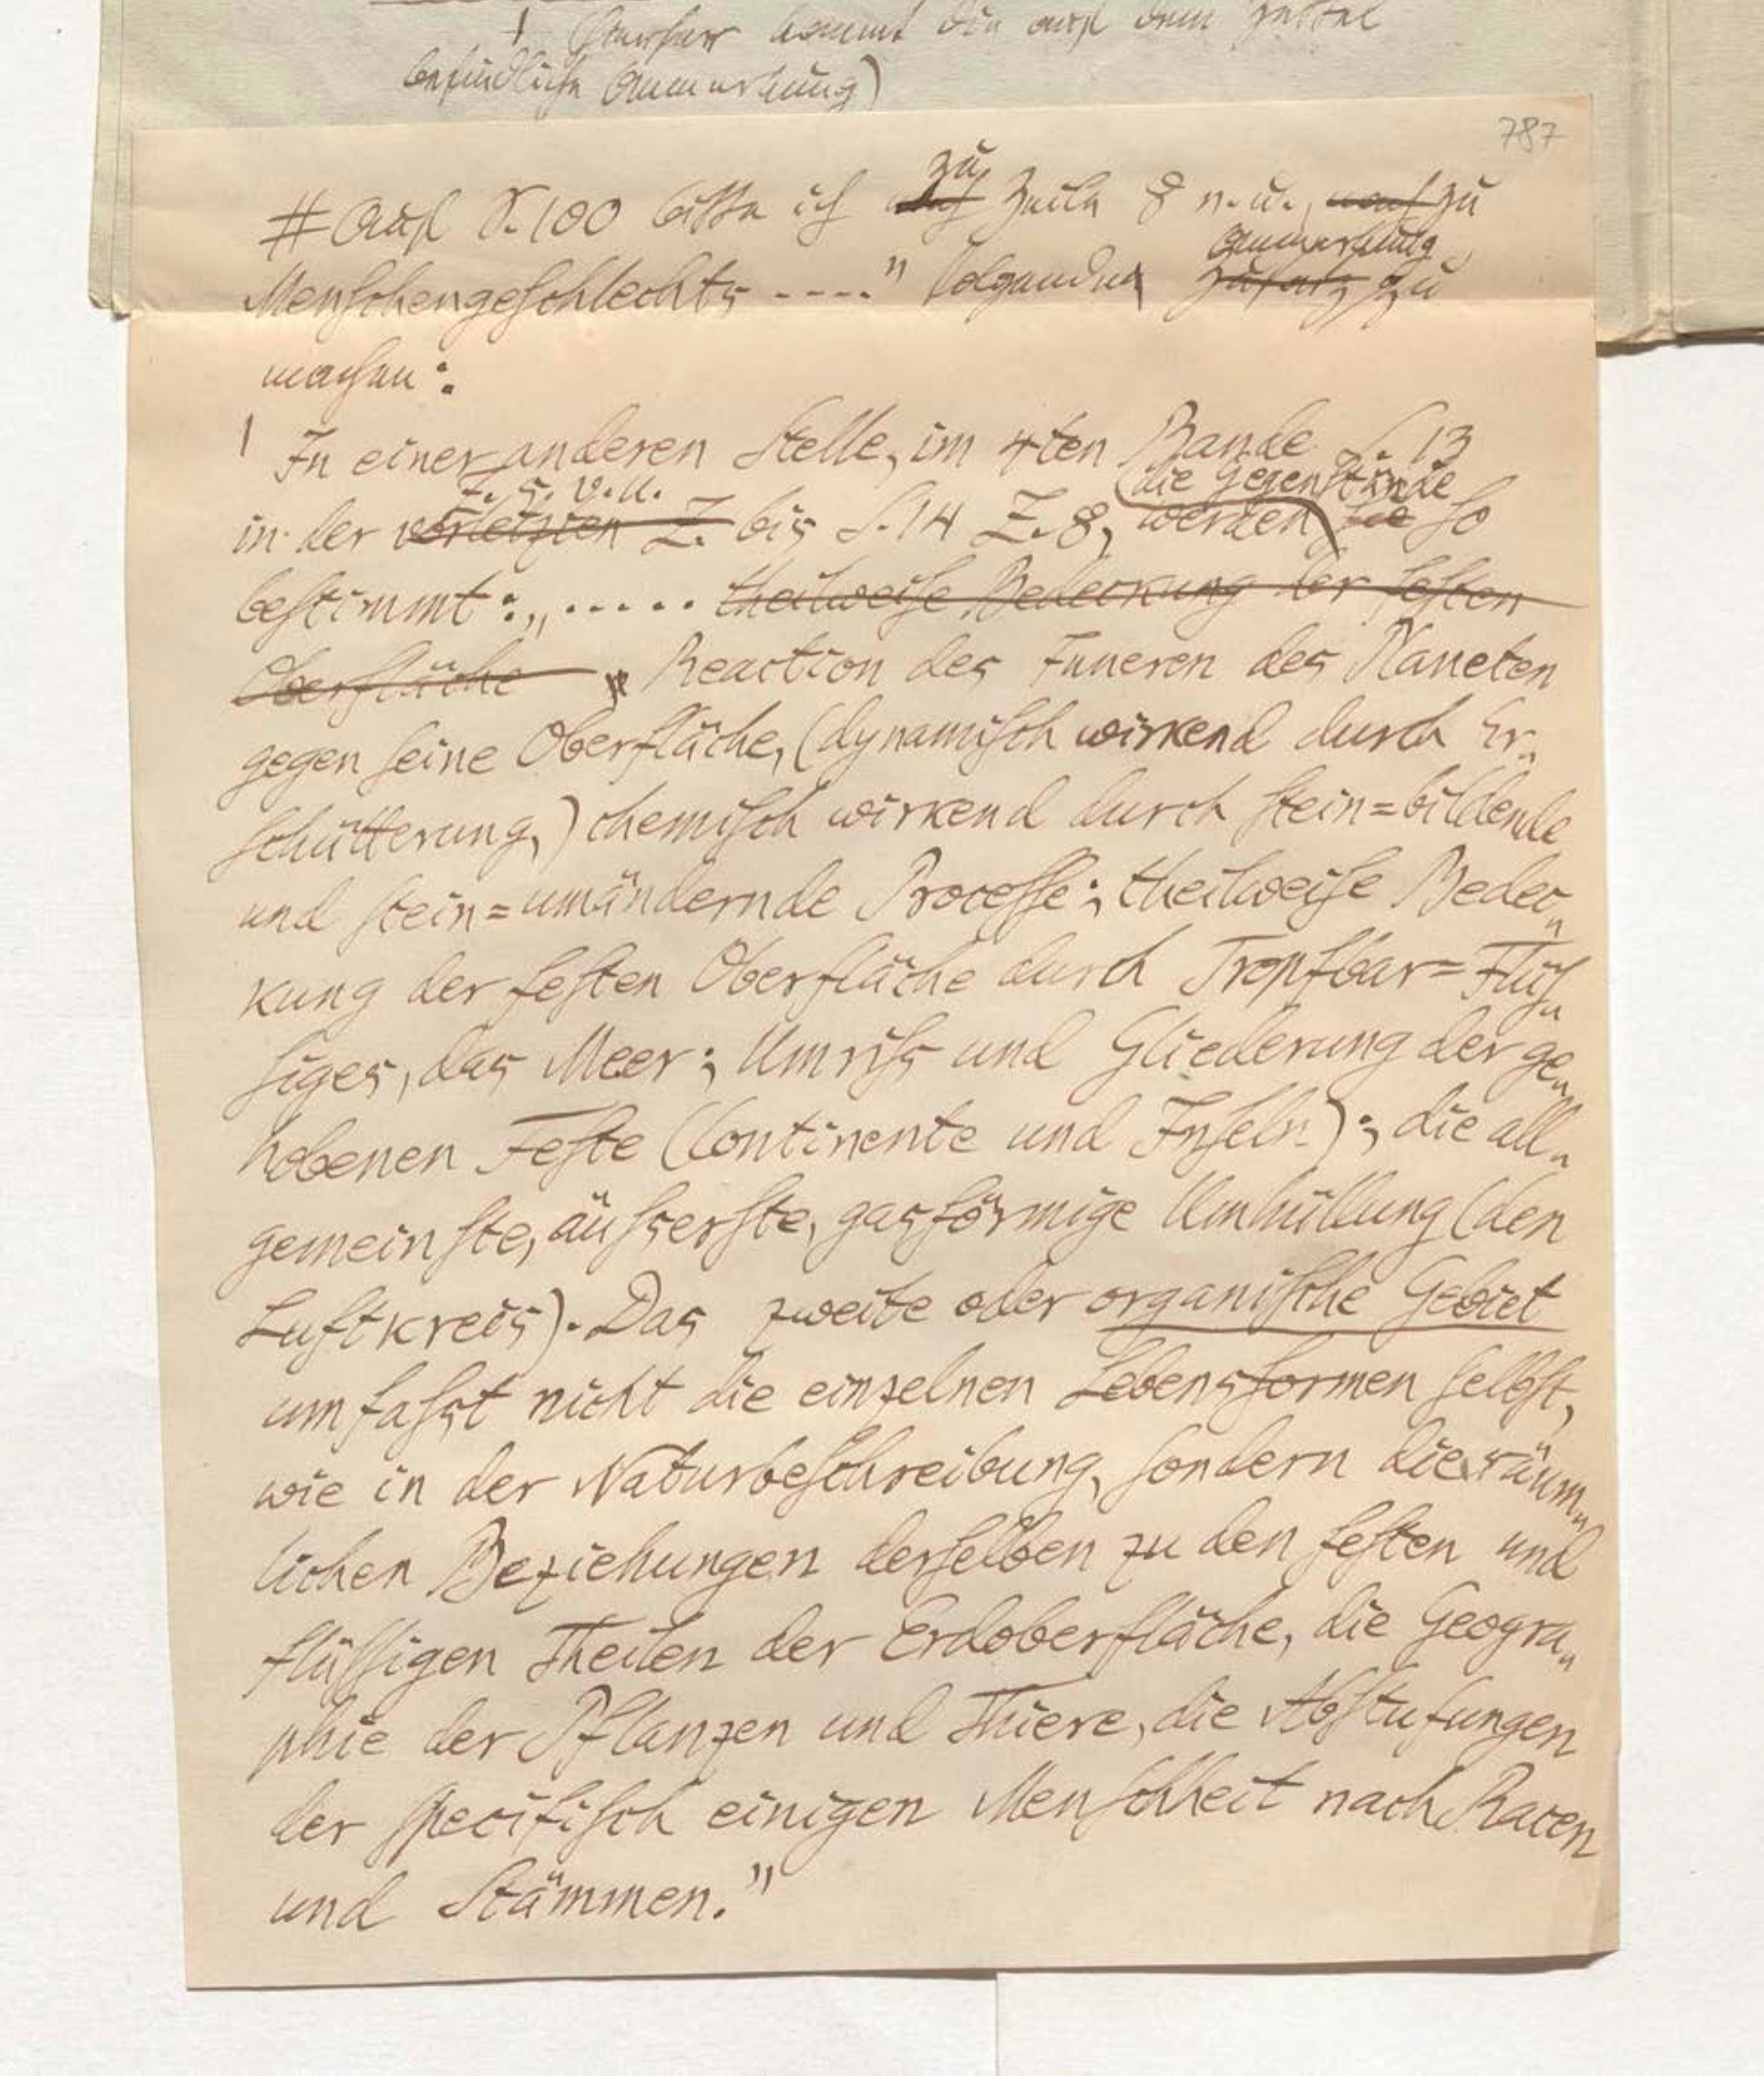 1 (hierher kommt die auf dem Zettel
befindliche Anmerkung)
787
# Auf S. 100 bitte ich zu Zeile 8 v. u., zu
Menschengeschlechts ....." folgende Anmerkung zu
machen:
1 In einer anderen Stelle, im 4ten Bande S. 13
Z. 5. v. u.
die Gegenstände
in der vorletzten Z. bis S. 14 Z. 8, werden sie so
bestimmt: „..... theilweise Bedeckung der festen
Oberfläche „Reaction des Inneren des Planeten
gegen seine Oberfläche, (dynamisch wirkend durch Er„
schütterung,) chemisch wirkend durch stein=bildende
und stein=umändernde Processe; theilweise Bedec„
kung der festen Oberfläche durch Tropfbar=Flüs„
siges, das Meer; Umriss und Gliederung der ge„
hobenen Feste (Continente und Inseln); die all„
gemeinste, äusserste, gasförmige Umhüllung (den
Luftkreis). Das zweite oder organische Gebiet
umfasst nicht die einzelnen Lebensformen selbst,
wie in der Naturbeschreibung, sondern die räum„
lichen Beziehungen derselben zu den festen und
flüssigen Theilen der Erdoberfläche, die Geogra„
phie der Pflanzen und Thiere, die Abstufungen
der specifisch einigen Menschheit nach Racen
und Stämmen."